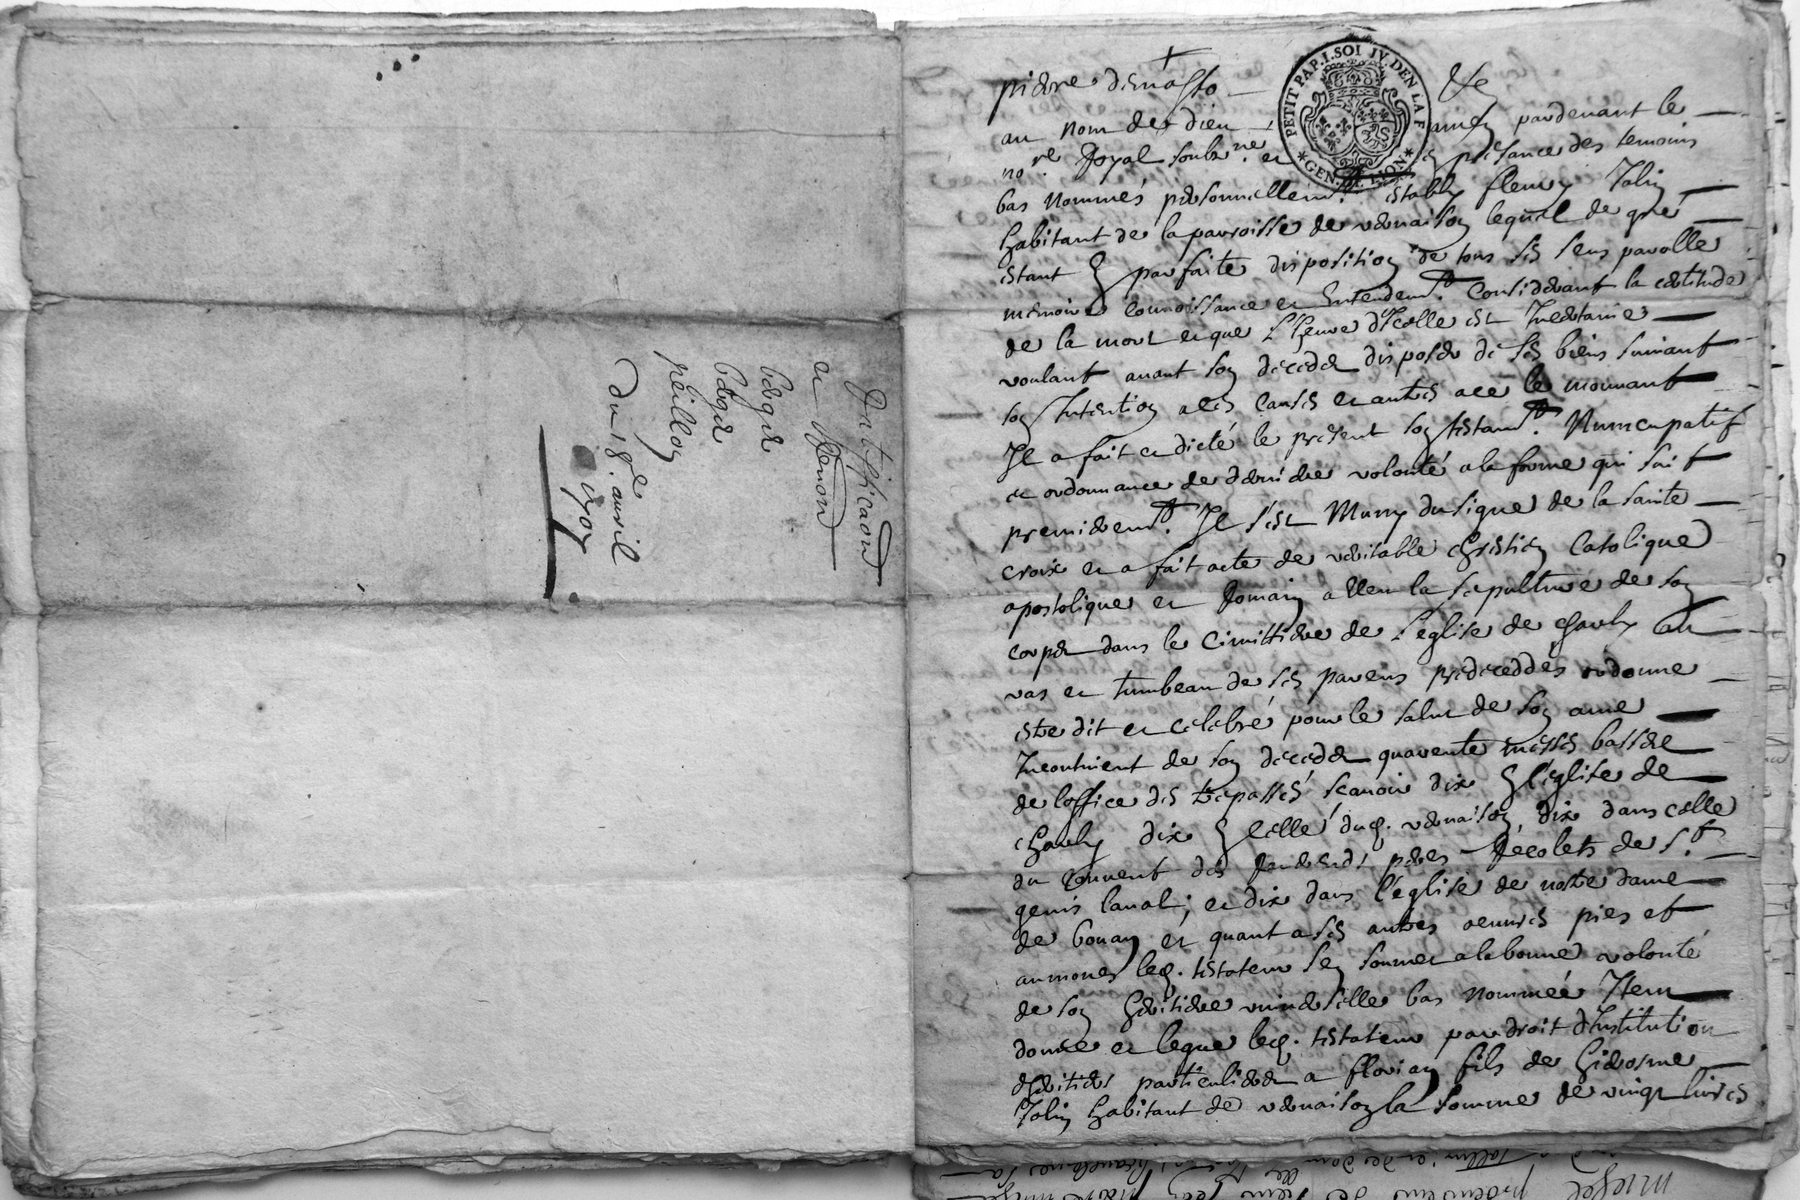 Ratifficaon
et Renon
berger
berger
peillon
du 18e avril
1707
PETIT PAP. 1. SOL IV. DEN LA F
GEN. DE LYON
au nom de dieu amen pardevant le
nore Royal soubzne et en presance des temoins
bas nommés personnellemt estably fleury Jolin
habitant de la parroisse de vernaison lequel de gré
estant en parfaite disposition de tous ses sens parolle
memoire connoissance et Entendemt. Considerant la certitude
de la mort et que l'heure d'Icelle est Incertaine
voulant avant son deceder disposer de ses biens suivant
son Intention a ces causes et autres a ce le mouvant
Il a fait et dicté le present son testamt. Nuncupatif
et ordonnance de derniere volonté a la forme qui suit
premieremt. Il s'est Muny du signe de la sainte
croix et a fait acte de veritable chrestien Catolique
apostolique et Romain a Eleu la sepulture de son
corps dans le cimittiere de l'eglise de charly au
vas et tumbeau de ses parens predeceddés ordonne
estre dit et celebré pour le salut de son ame
Incontinent de son deceder quarente messes basses
de loffice des trepassés scavoir dix en l'eglise de
charly dix en celle dud. vernaison, dix dans celle
du couvent des Reverends peres Recolets de St.
genis laval; et dix dans l'eglise de nostre dame
de bonan et quant a ses autres oeuvres pies et
aumones led. testateur s'en soumet a la bonne volonté
de son heritiere universelle bas nommée Item
donne et legue led. testateur par droit d'Institution
d'heritier particuliere a florian fils de hierosme
Jolin habitant de vernaison la somme de vingt livres